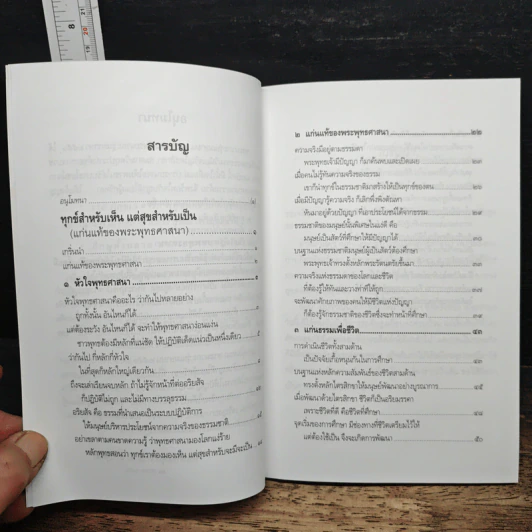 สารบัญ
อนุโมทนา
ทุกข์สำหรับเห็น แต่สุขสำหรับเป็น
(แก่นแท้ของพระพุทธศาสนา) ๑
เกริ่นนำ ๑
แก่นแท้ของพระพุทธศาสนา
๑ หัวใจพุทธศาสนา ๕
หัวใจพุทธศาสนาคืออะไร ว่ากันไปหลายอย่าง
ถูกทั้งนั้น อันไหนก็ได้
แต่ต้องระวัง อันไหนก็ได้ จะทำให้พุทธศาสนาง่อนแง่น
ชาวพุทธต้องมีหลักที่แน่ชัด ให้ปฏิบัติเด็ดแน่วเป็นหนึ่งเดียว
ว่ากันไป ก็หลักที่หัวใจ
ในที่สุดก็หลักใหญ่เดียวกัน
ถึงจะเล่าเรียนจบหลัก ถ้าไม่รู้จักหน้าที่ต่ออริยสัจ
ก็ปฏิบัติไม่ถูก และไม่มีทางบรรลุธรรม
อริยสัจ คือ ธรรมที่นำเสนอเป็นระบบปฏิบัติการ
ให้มนุษย์บริหารประโยชน์จากความจริงของธรรมชาติ
อย่าเขลาตามคนขาดความรู้ ว่าพุทธศาสนามองโลกแง่ร้าย
หลักพุทธสอนว่า ทุกข์เราต้องมองเห็น แต่สุขสำหรับจะมีจะเป็น
๒ แก่นแท้ของพระพุทธศาสนา ๒๒
ความจริงมีอยู่ตามธรรมดา
พระพุทธเจ้ามีปัญญา ก็มาค้นพบและเปิดเผย ๒๓
เมื่อคนไม่รู้ทันความจริงของธรรม
เขาก็นำทุกข์ในธรรมชาติมาสร้างให้เป็นทุกข์ของตน
เมื่อมีปัญญารู้ความจริง ก็เลิกพึ่งพิงตัณหา
หันมาอยู่ด้วยปัญญา ที่เอาประโยชน์ได้จากธรรม
ธรรมชาติของมนุษย์นั้นพิเศษในแง่ดี คือ
มนุษย์เป็นสัตว์ที่ศึกษาให้มีปัญญาได้
บนฐานแห่งธรรมชาติมนุษย์ผู้เป็นสัตว์ต้องศึกษา
พระพุทธเจ้าทรงตั้งหลักพระรัตนตรัยขึ้นมา
ความจริงแห่งธรรมดาของโลกและชีวิต
ที่ต้องรู้ให้ทันและวางท่าทีให้ถูก
จะพัฒนาศักยภาพของคนให้มีชีวิตแห่งปัญญา
ก็ต้องรู้จักธรรมชาติของชีวิตซึ่งจะทำหน้าที่ศึกษา
๓ แก่นธรรมเพื่อชีวิต ๔๓
การดำเนินชีวิตทั้งสามด้าน
เป็นปัจจัยเกื้อหนุนกันในการศึกษา
บนฐานแห่งหลักความสัมพันธ์ของชีวิตสามด้าน
ทรงตั้งหลักไตรสิกขาให้มนุษย์พัฒนาอย่างบูรณาการ ๔๕
เมื่อพัฒนาด้วยไตรสิกขา ชีวิตก็เป็นอริยมรรคา
เพราะชีวิตที่ดี คือชีวิตที่ศึกษา
จุดเริ่มของการศึกษา มีช่องทางที่ชีวิตเตรียมไว้ให้
แต่ต้องใช้เป็น จึงจะเกิดการพัฒนา ๕๐